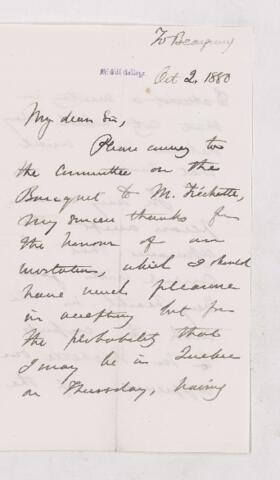 To Beaugrand
McGill College,
Oct 2, 1880
My dear Sir,
Please convey to
the Committee on the
Banquet to M. Fréchette,
my sincere thanks for
the honour of an
invitation, which I should
have much pleasure
in accepting but for
the probability that
I may be in Quebec
on Thursday, having